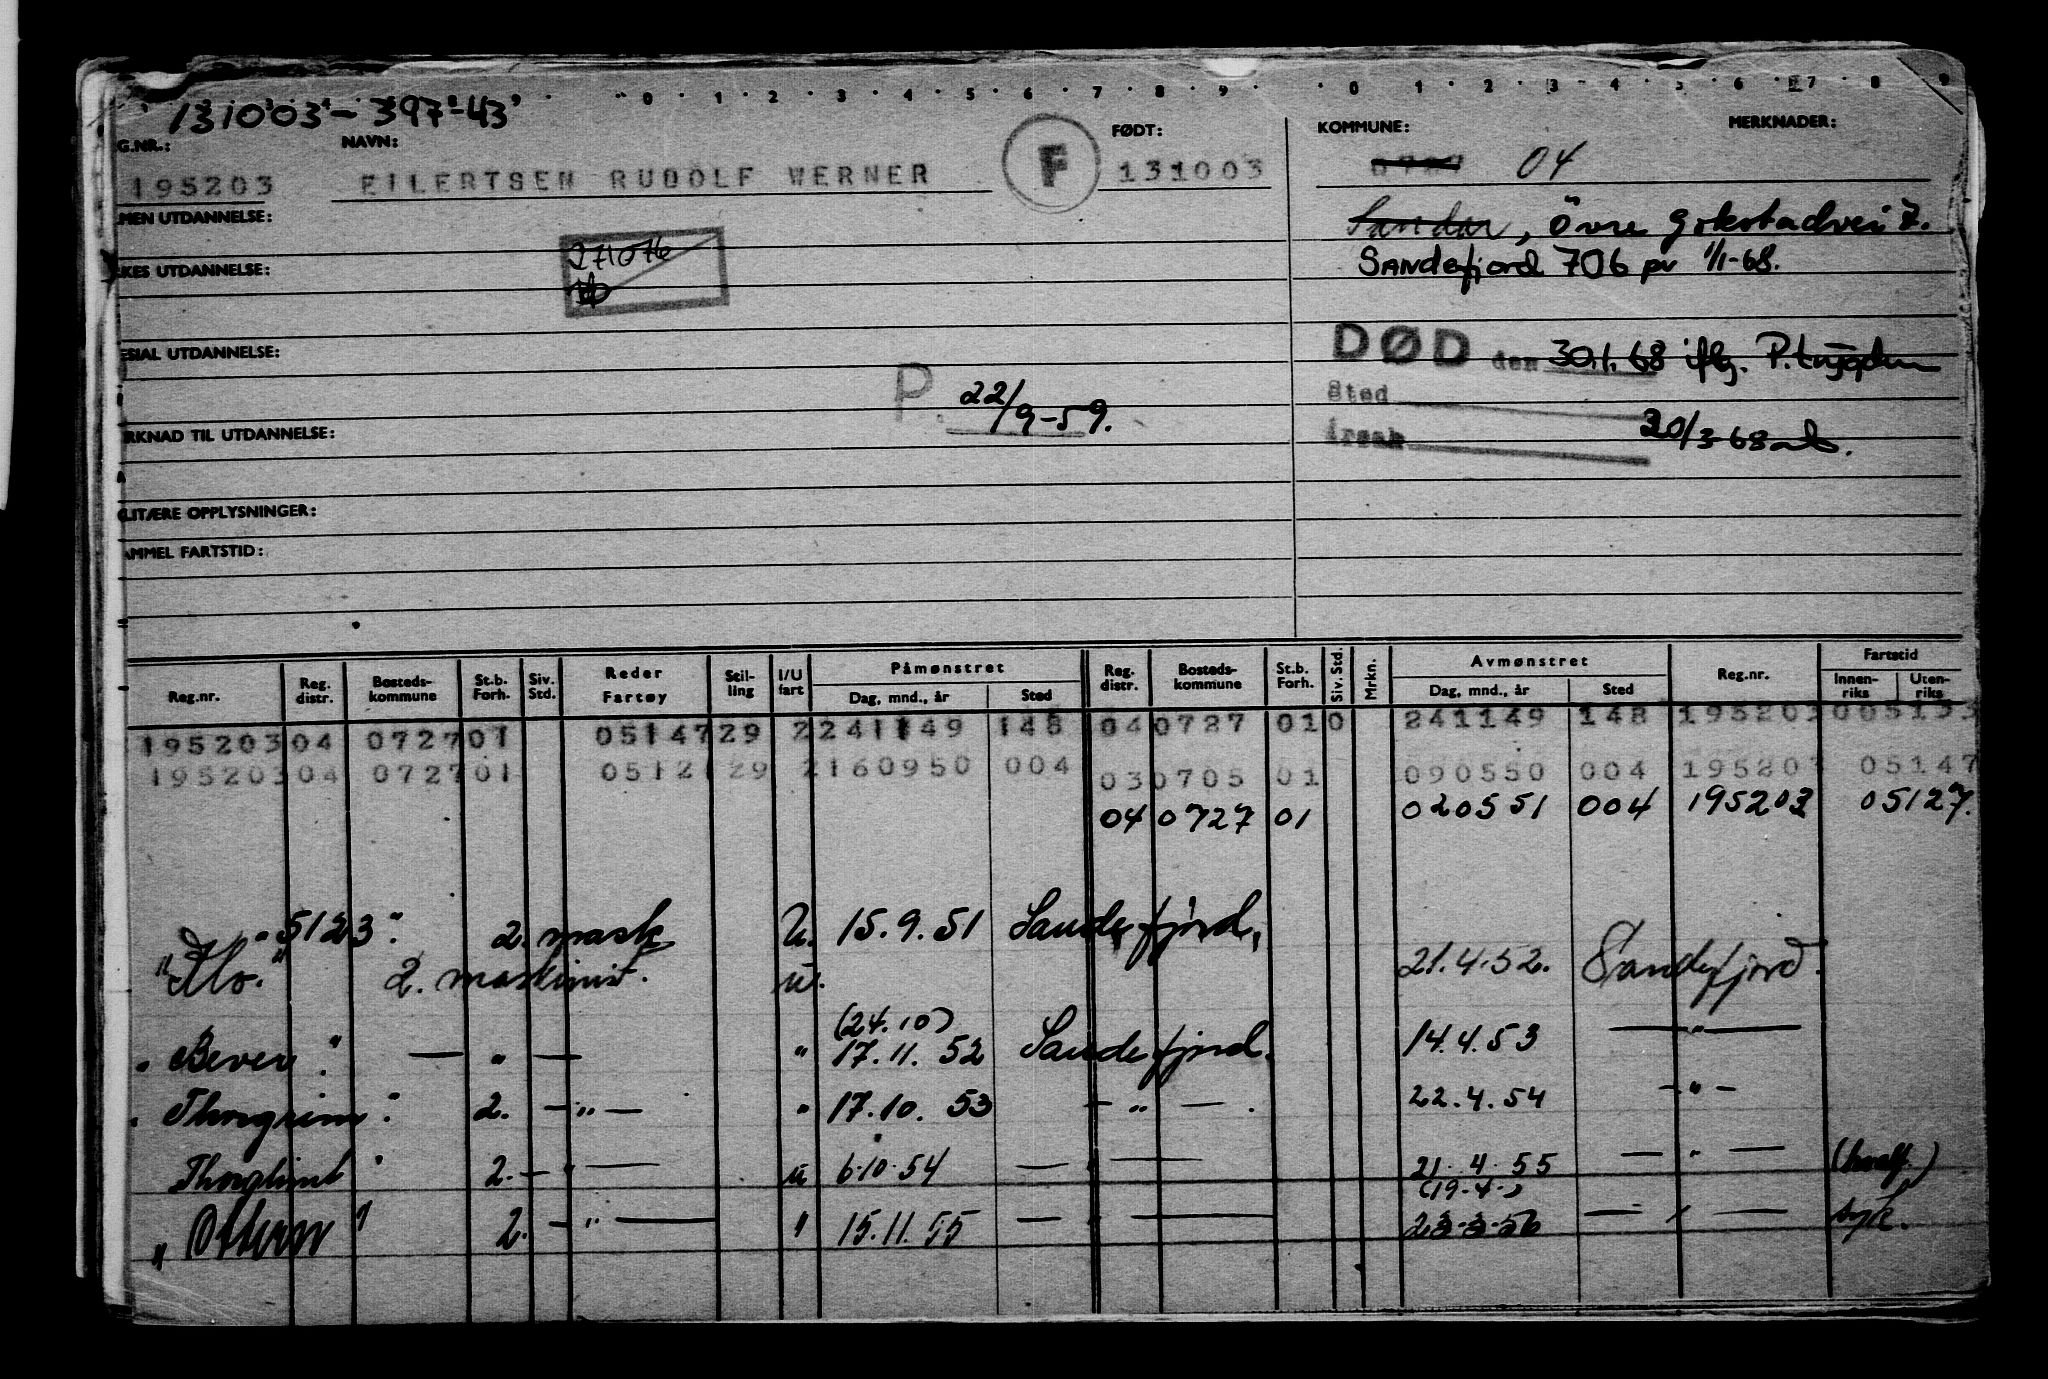 131003-397-43
G.NR.: NAVN: FØDT: KOMMUNE: MERKNADER:
195203 EILERTSEN RUDOLF WERNER F 131003 04
MEN UTDANNELSE: Sandar, Övre Gokstadvei 7.
KES UTDANNELSE: 271076 Sandefjord 706 pr 1/1-68.
ESIAL UTDANNELSE: DØD den 30.1.68 iflg. P.trygden
P. 22/9-59. Sted
RKNAD TIL UTDANNELSE: Årsak 20/3-68
LITÆRE OPPLYSNINGER:
AMMEL FARTSTID:
Reg.nr. Reg. distr. Bosteds-kommune St.b. Forh. Siv. Std. Reder Fartøy Stil-ling I/U fart Påmønstret Dag, mnd., år Sted Reg. distr. Bosteds-kommune St.b. Forh. Siv. Std. Mrkn. Avmønstret Dag, mnd., år Sted Reg.nr. Fartstid Innen-riks Uten-riks
195203 04 0727 01 05147 29 2 241149 148 04 0727 01 0 241149 148 195203 005133
195203 04 0727 01 0512 29 2 160950 004 03 0705 01 090550 004 195203 05147
04 0727 01 020551 004 195203 05127.
"5123" 2. mask U. 15.9.51 Sandefjord,
"Mo." 2. maskinist. u. 21.4.52. Sandefjord.
(24.10)
"Bever" — " — " 17.11.52 Sandefjord. 14.4.53 — " —
"Thorgrim" 2. — " — " 17.10.53 — " — . 22.4.54 - " -
Thorglimt " 2. — " — u 6.10.54 — " — 21.4.55 — " — (hvalf.)
(19.4.)
"Ottern" 2. — " — " 15.11.55 — " — 23-3-56 — " — syk.